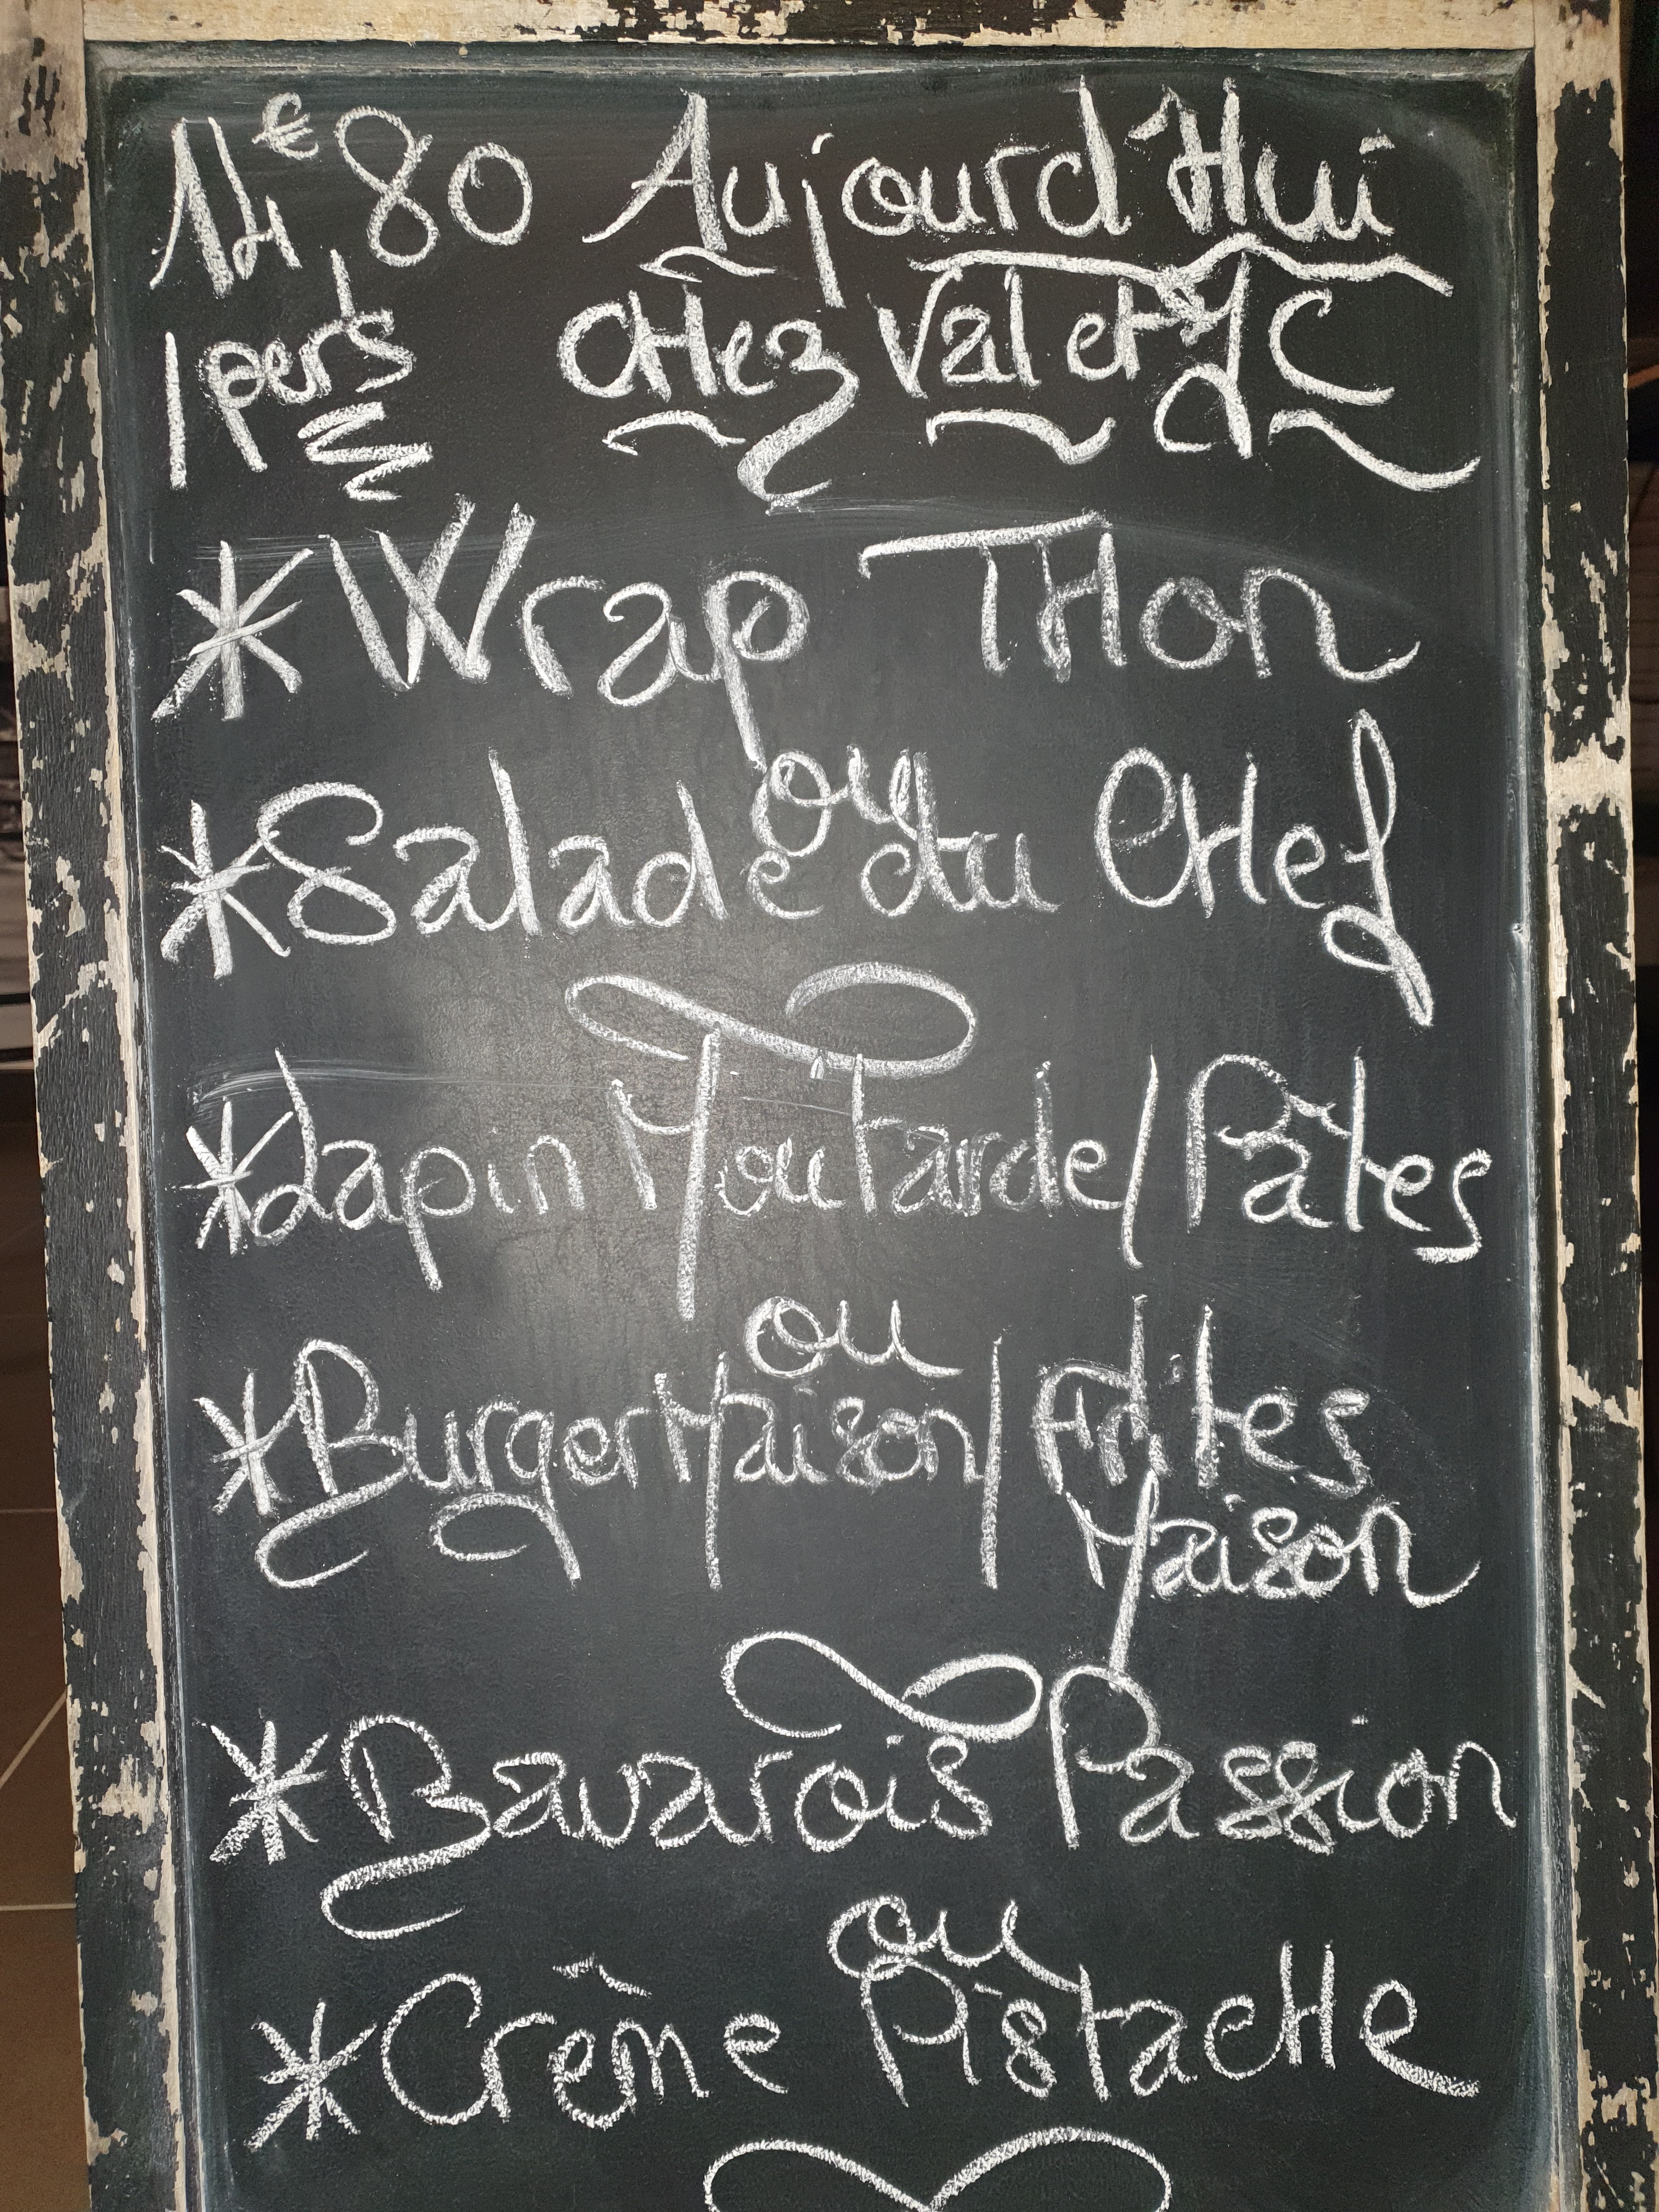 14€80 Aujourd'Hui
1 pers CHez Val et JC
* Wrap THon
ou
* Salade du CHef
* Lapin Moutarde / Pâtes
ou
* Burger Maison / Frites
Maison
* Bavarois Passion
ou
* Crème PistacHe